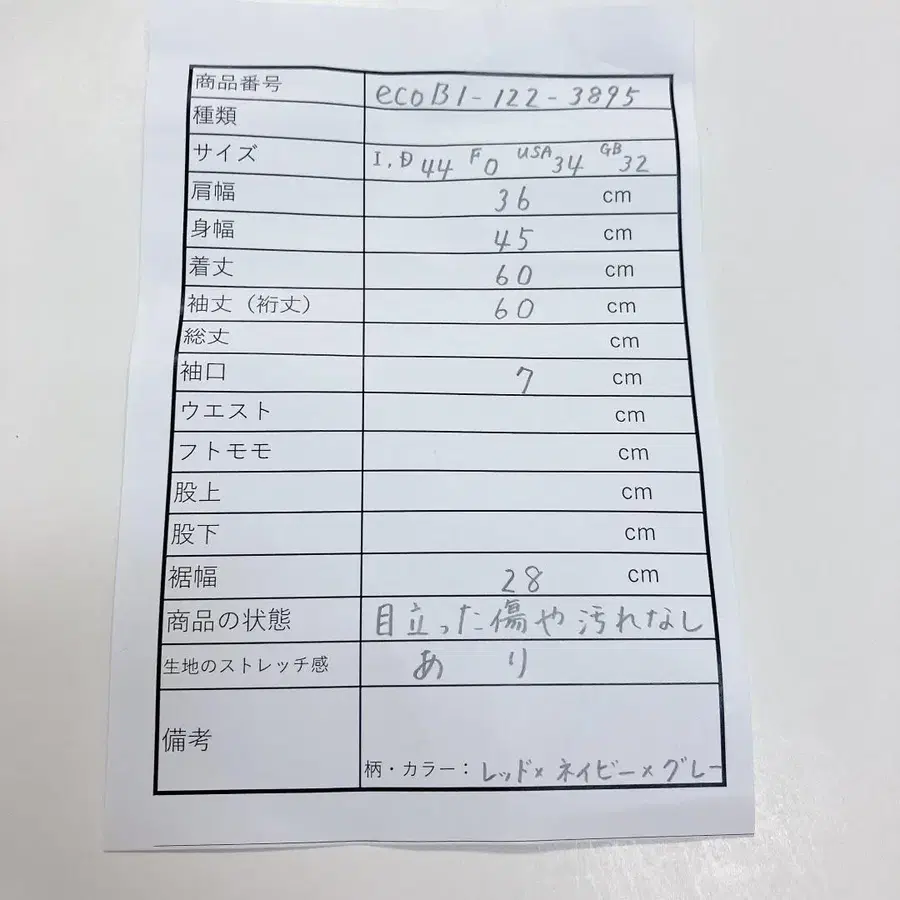 商品番号 ecoB1-122-3895
種類
サイズ I.D 44 F 0 USA 34 GB 32
肩幅 36 cm
身幅 45 cm
着丈 60 cm
袖丈（裄丈） 60 cm
総丈 cm
袖口 7 cm
ウエスト cm
フトモモ cm
股上 cm
股下 cm
裾幅 28 cm
商品の状態 目立った傷や汚れなし
生地のストレッチ感 あり
備考
柄・カラー： レッド×ネイビー×グレー